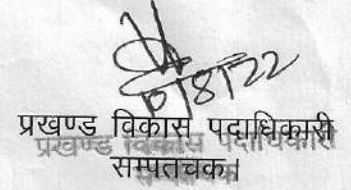 10/8/22
प्रखण्ड विकास पदाधिकारी
प्रखण्ड विकास पदाधिकारी
सम्पतचक।